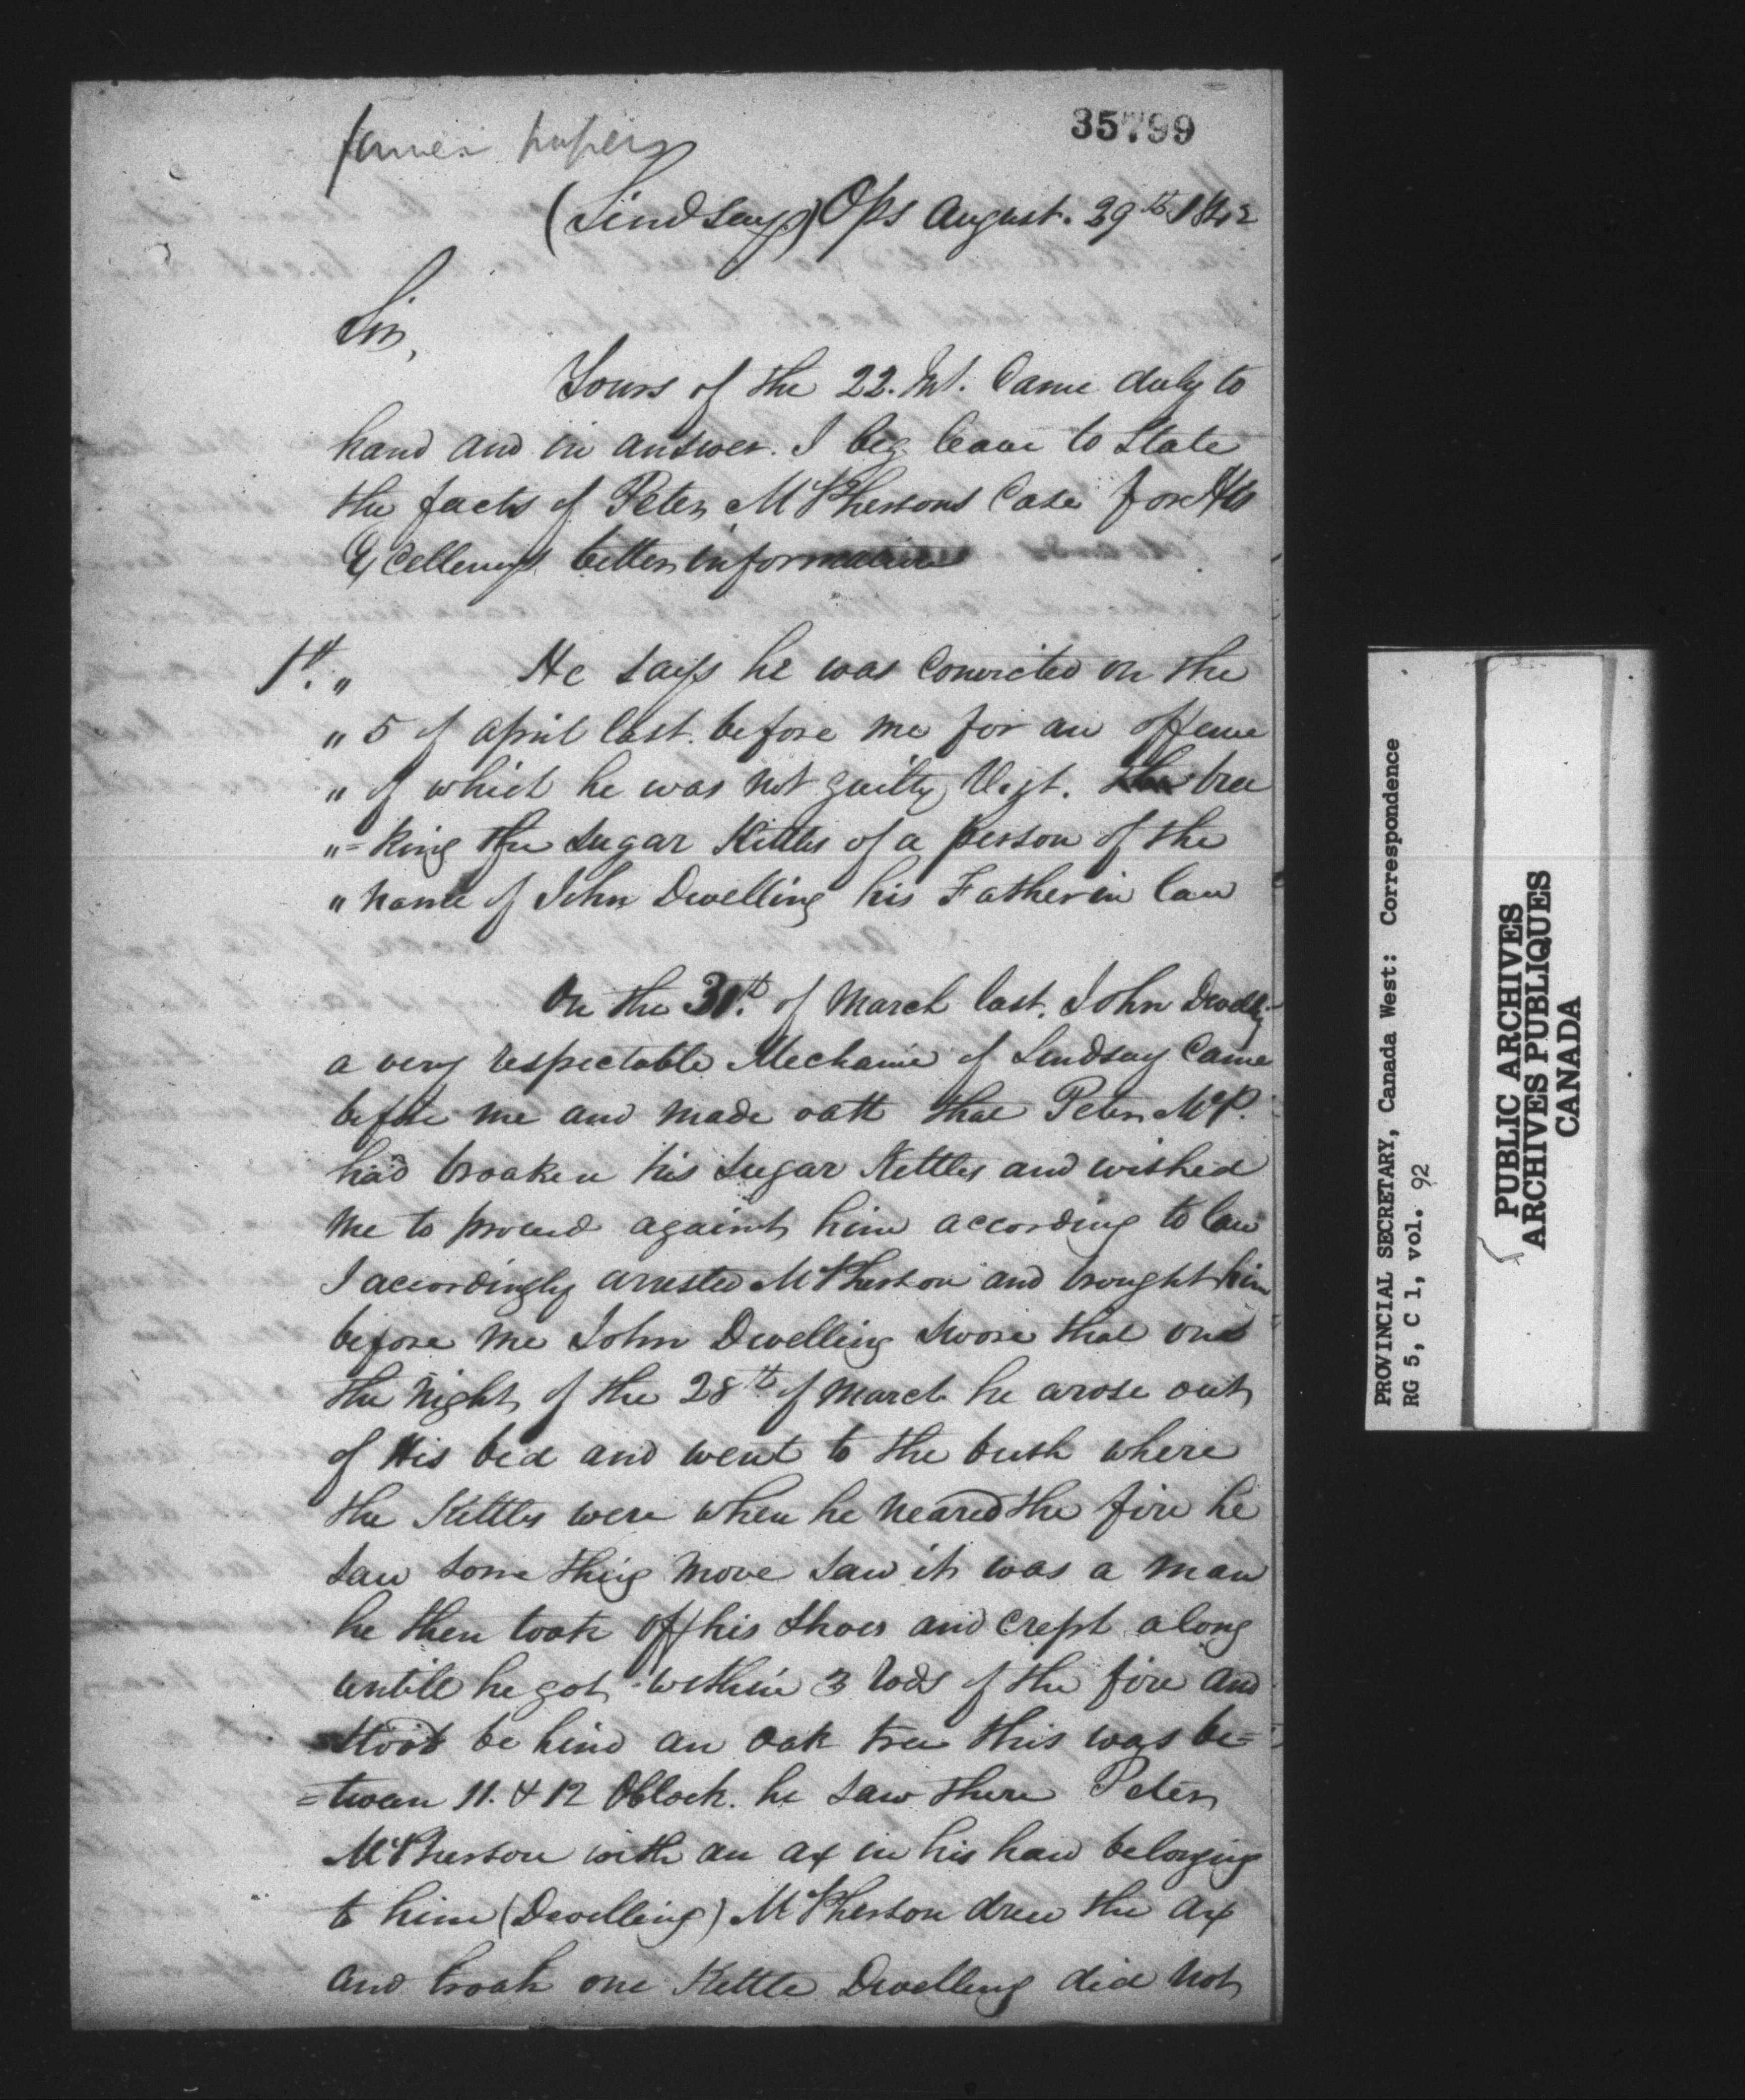 former papers
35799
(Lindsay) Ops August. 29th 1842
Sir,
Yours of the 22. Int. Came duly to
hand and in answer. I beg leave to State
the facts of Peter McPhersons Case for His
Excellencys better information
1st. " He says he was Convicted on the
" 5 of april last. before me for an offence
" of which he was not guilty Vizt. brea
"=king the Sugar Kittles of a person of the
" name of John Dwelling his Father in law
On the 30th. of March last. John Dwelling
a very respectable Mechanic of Lindsay Came
before me and made oath that Peter McP.
had broaken his Sugar Kettles and wished
me to proceed against him according to law
I accordingly arrested McPherson and brought him
before me John Dwelling Swore that on
the night of the 28th of March he arose out
of His bed and went to the bush where
the Kittles were when he neared the fire he
saw some thing move saw it was a man
he then took off his Shoes and Crept along
untill he got within 3 rods of the fire and
stood be hind an oak tree this was be=
=tween 11. & 12 Oblock. he saw there Peter
McPherson with an ax in his hand belonging
to him (Dwelling) McPherson drew the ax
and broak one Kettle Dwelling did not
PROVINCIAL SECRETARY, Canada West: Correspondence
RG 5, C 1, vol. 92
PUBLIC ARCHIVES
ARCHIVES PUBLIQUES
CANADA